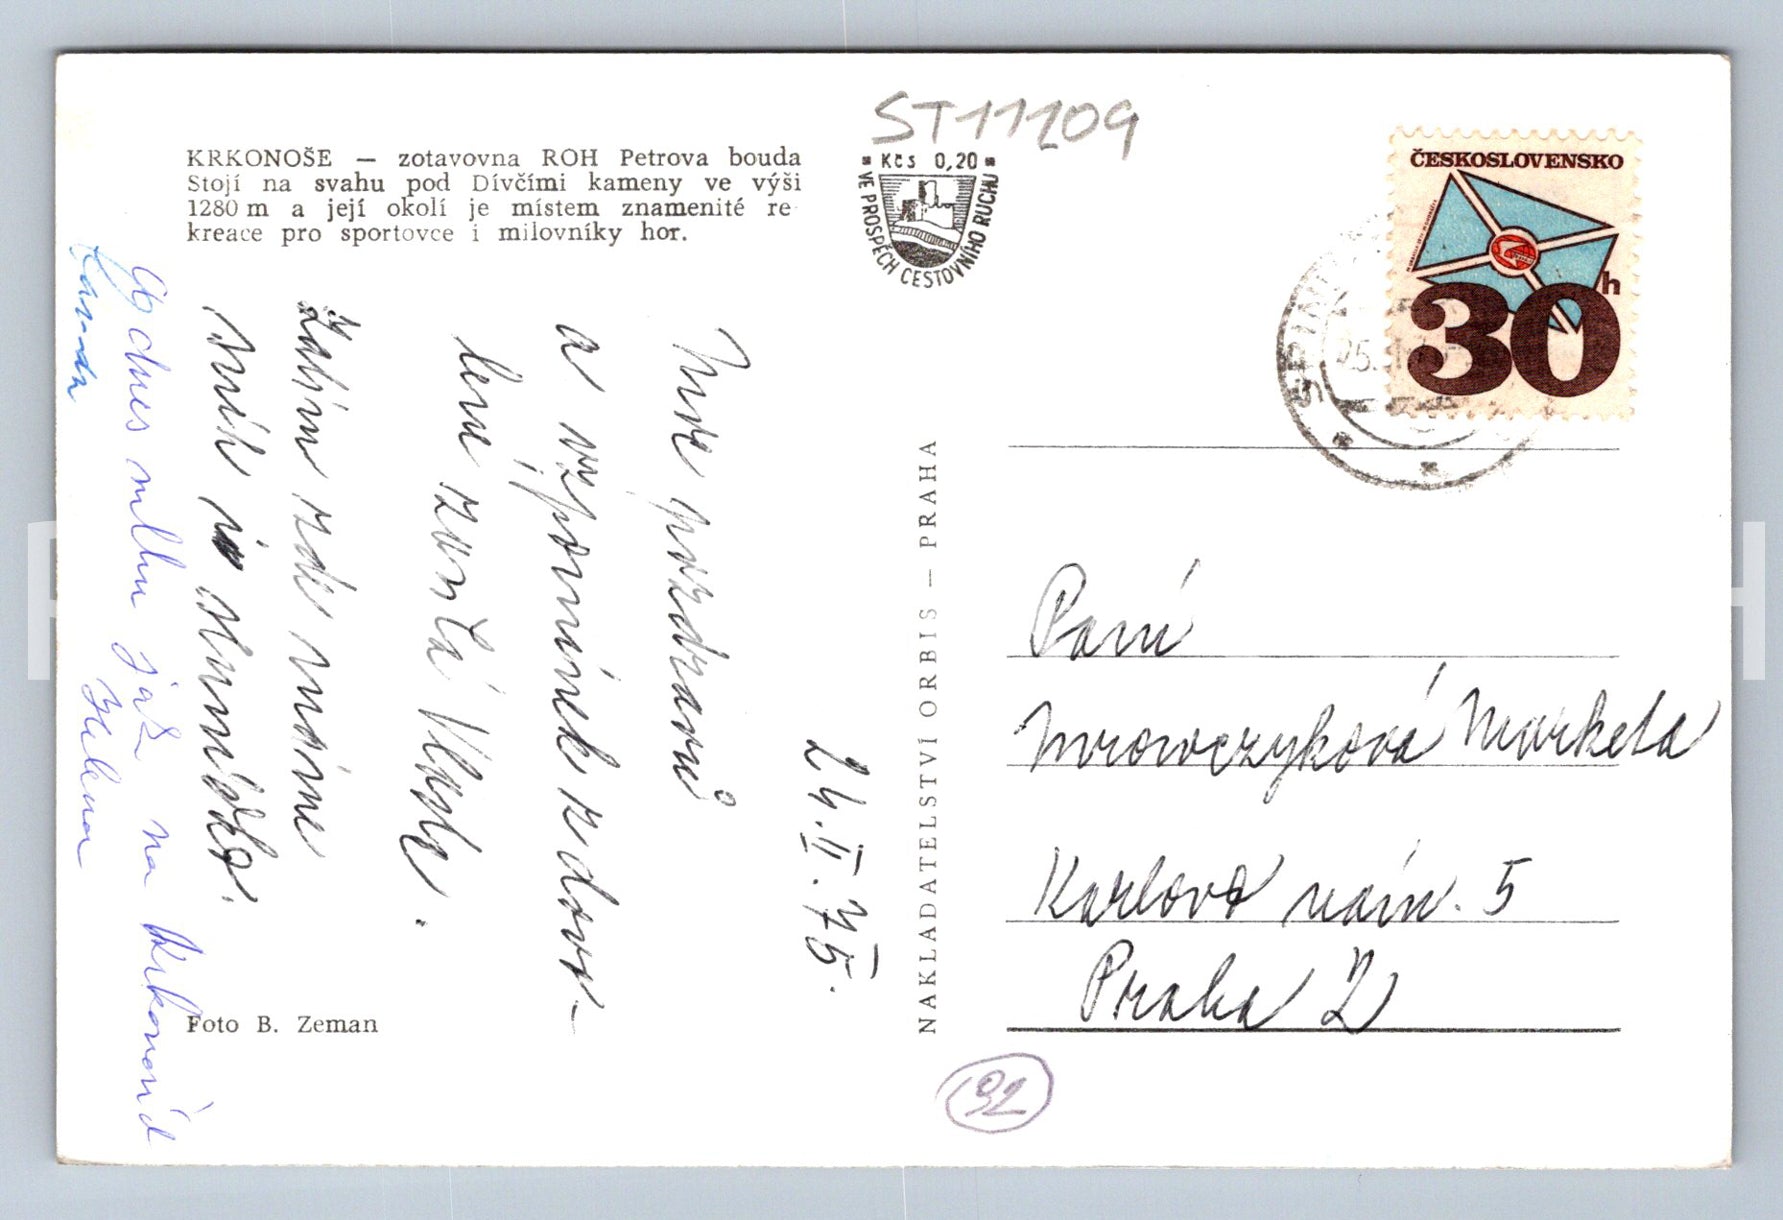 ST11209
KRKONOŠE — zotavovna ROH Petrova bouda
Stojí na svahu pod Dívčími kameny ve výši
1280 m a její okolí je místem znamenité re-
kreace pro sportovce i milovníky hor.
Kčs 0,20
VE PROSPĚCH CESTOVNÍHO RUCHU
ČESKOSLOVENSKO
30h
24.II.75.
pozdravů
a vzpomínek z dovo-
lené
Zatím zde máme
sníh i sluníčko.
dnes mlhu jak na Krkonoších
Helena
NAKLADATELSTVÍ ORBIS — PRAHA
Paní
Mrowczyková Marketa
Karlovo nám. 5
Praha 2
Foto B. Zeman
92